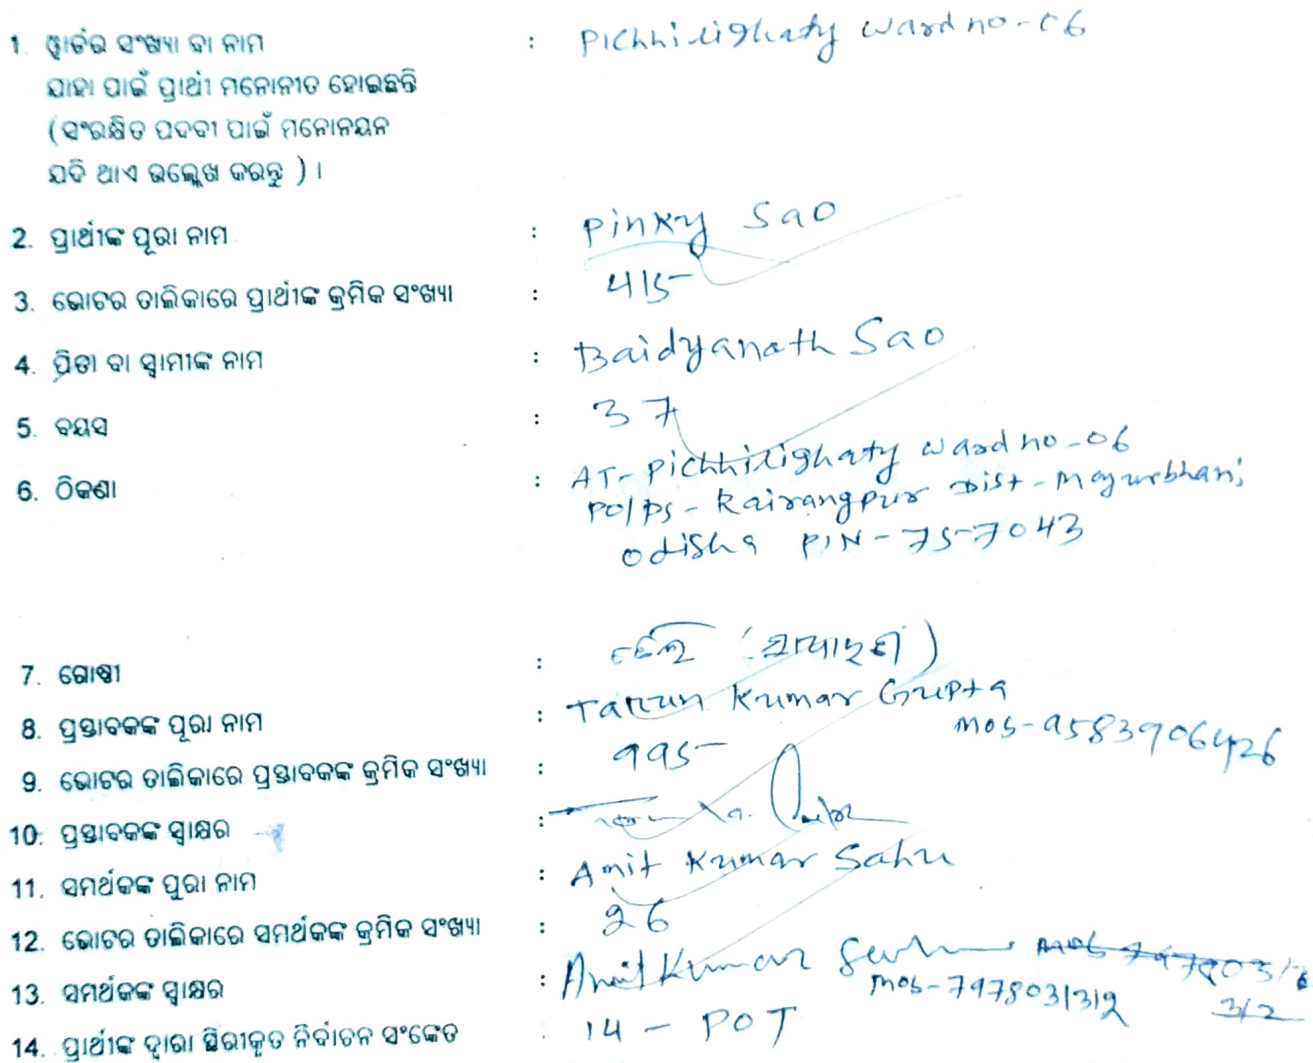 1. ୱାର୍ଡର ସଂଖ୍ୟା ବା ନାମ : Pichhilighaty ward no-06
ଯାହା ପାଇଁ ପ୍ରାର୍ଥୀ ମନୋନୀତ ହୋଇଛନ୍ତି
(ସଂରକ୍ଷିତ ପଦବୀ ପାଇଁ ମନୋନୟନ
ଯଦି ଥାଏ ଉଲ୍ଲେଖ କରନ୍ତୁ )।
2. ପ୍ରାର୍ଥୀଙ୍କ ପୂରା ନାମ : Pinky Sao
3. ଭୋଟର ତାଲିକାରେ ପ୍ରାର୍ଥୀଙ୍କ କ୍ରମିକ ସଂଖ୍ୟା : 415
4. ପିତା ବା ସ୍ୱାମୀଙ୍କ ନାମ : Baidyanath Sao
5. ବୟସ : 37
6. ଠିକଣା : AT- Pichhilighaty ward no-06
PO/PS - Rairangpur Dist - Mayurbhanj
Odisha PIN - 757043
7. ଗୋଷ୍ଠୀ : ତେଲି
8. ପ୍ରସ୍ତାବକଙ୍କ ପୂରା ନାମ : Tarun Kumar Gupta
Mob- 9583906426
9. ଭୋଟର ତାଲିକାରେ ପ୍ରସ୍ତାବକଙ୍କ କ୍ରମିକ ସଂଖ୍ୟା : 995
10. ପ୍ରସ୍ତାବକଙ୍କ ସ୍ୱାକ୍ଷର :
11. ସମର୍ଥକଙ୍କ ପୁରା ନାମ : Amit Kumar Sahu
12. ଭୋଟର ତାଲିକାରେ ସମର୍ଥକଙ୍କ କ୍ରମିକ ସଂଖ୍ୟା : 26
13. ସମର୍ଥକଙ୍କ ସ୍ୱାକ୍ଷର : Amit Kumar Sahu
Mob- 7978031312
312
14. ପ୍ରାର୍ଥୀଙ୍କ ଦ୍ୱାରା ସ୍ଥିରୀକୃତ ନିର୍ବାଚନ ସଂକେତ : 14 - POT